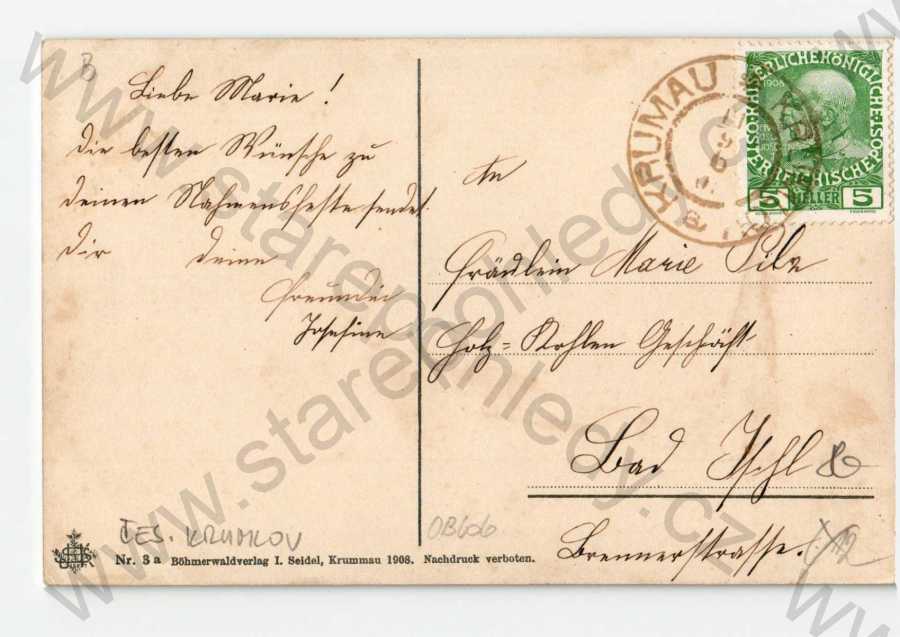 B
Liebe Marie!
Die besten Wünsche zu
deinen Nahmensfeste sendet
dir deine
Freundin
Josefine
ČES. KRUMLOV
Nr. 3a Böhmerwaldverlag I. Seidel, Krummau 1908. Nachdruck verboten.
KRUMAU
KAISERLICHEKÖNIGLICHE
ÖSTERREICHISCHE POST
1908
5 HELLER 5
An
Fräulein Marie Pilz
Holz=Kohlen Geschäft
Bad Ischl
OB606
Brennerstrasse.
www.starepohledy.cz